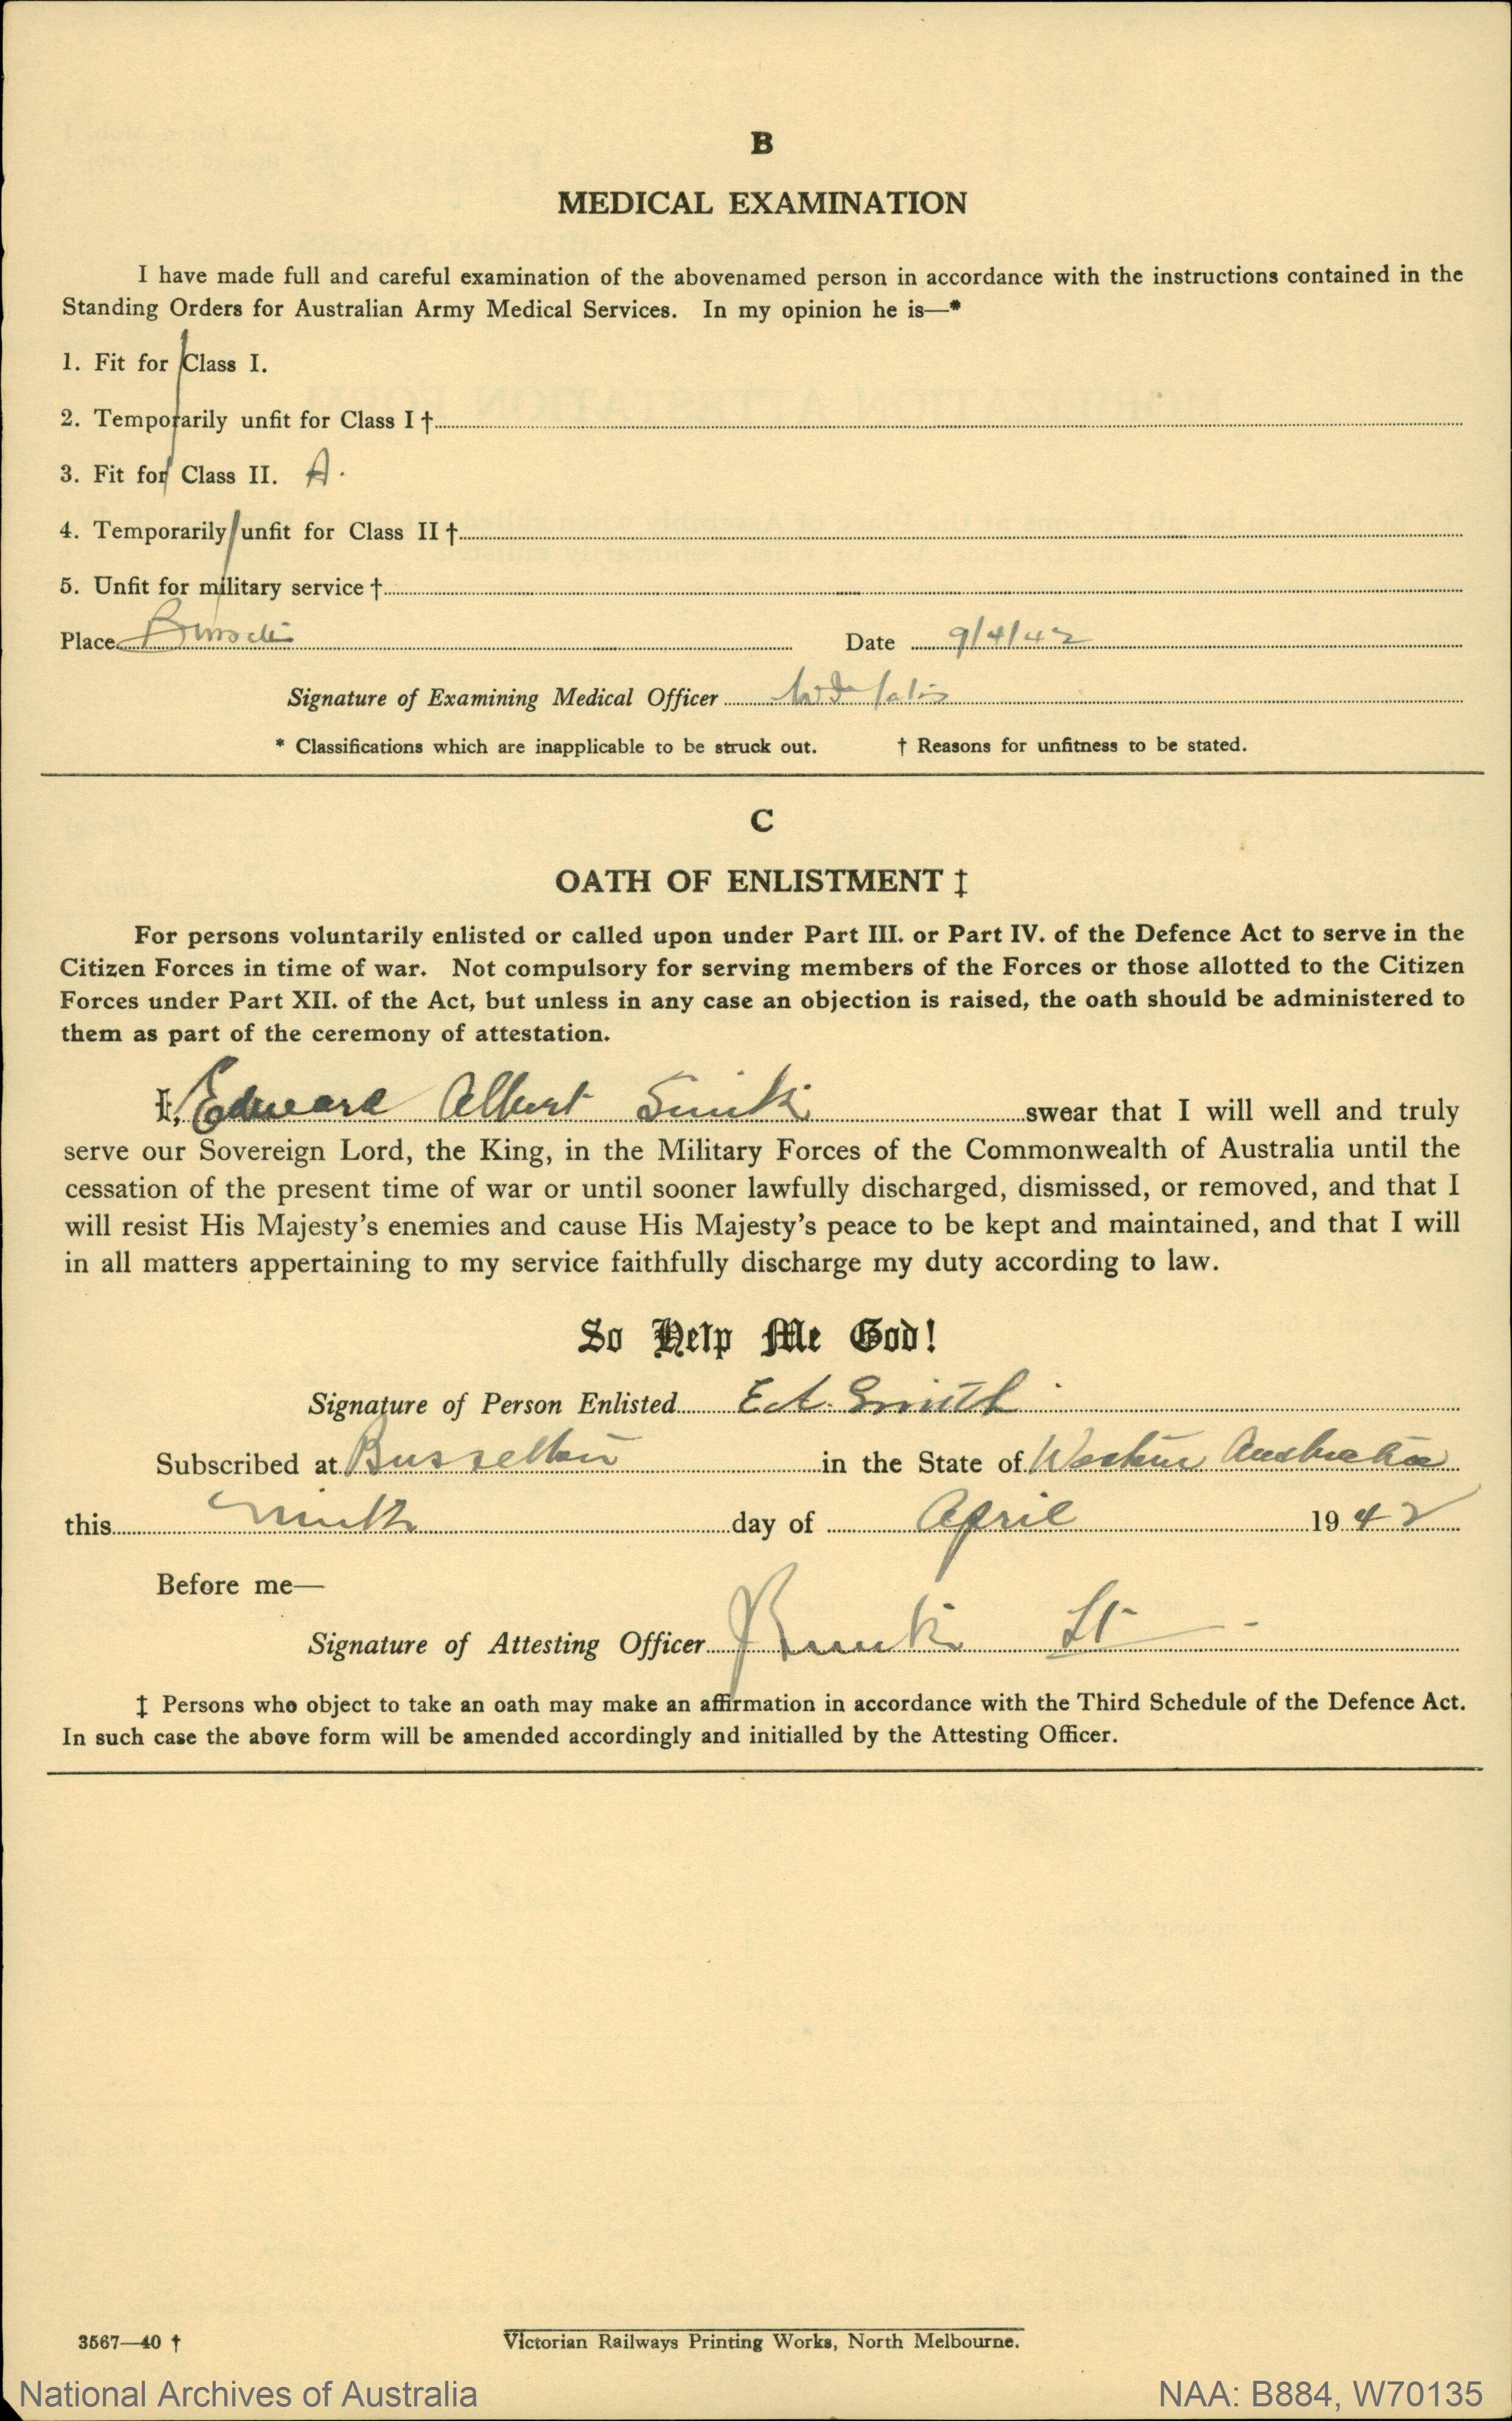 B
MEDICAL EXAMINATION
I have made full and careful examination of the abovenamed person in accordance with the instructions contained in the
Standing Orders for Australian Army Medical Services. In my opinion he is—*
1. Fit for Class I.
2. Temporarily unfit for Class I †
3. Fit for Class II. A.
4. Temporarily unfit for Class II †
5. Unfit for military service †
Place Date 9/4/42
Signature of Examining Medical Officer
* Classifications which are inapplicable to be struck out. † Reasons for unfitness to be stated.
C
OATH OF ENLISTMENT ‡
For persons voluntarily enlisted or called upon under Part III. or Part IV. of the Defence Act to serve in the
Citizen Forces in time of war. Not compulsory for serving members of the Forces or those allotted to the Citizen
Forces under Part XII. of the Act, but unless in any case an objection is raised, the oath should be administered to
them as part of the ceremony of attestation.
I, Edward Albert Smith swear that I will well and truly
serve our Sovereign Lord, the King, in the Military Forces of the Commonwealth of Australia until the
cessation of the present time of war or until sooner lawfully discharged, dismissed, or removed, and that I
will resist His Majesty's enemies and cause His Majesty's peace to be kept and maintained, and that I will
in all matters appertaining to my service faithfully discharge my duty according to law.
So Help Me God!
Signature of Person Enlisted E A. Smith
Subscribed at Busselton in the State of Western Australia
this ninth day of April 1942
Before me—
Signature of Attesting Officer Lt
‡ Persons who object to take an oath may make an affirmation in accordance with the Third Schedule of the Defence Act.
In such case the above form will be amended accordingly and initialled by the Attesting Officer.
3567—40 † Victorian Railways Printing Works, North Melbourne.
National Archives of Australia NAA: B884, W70135